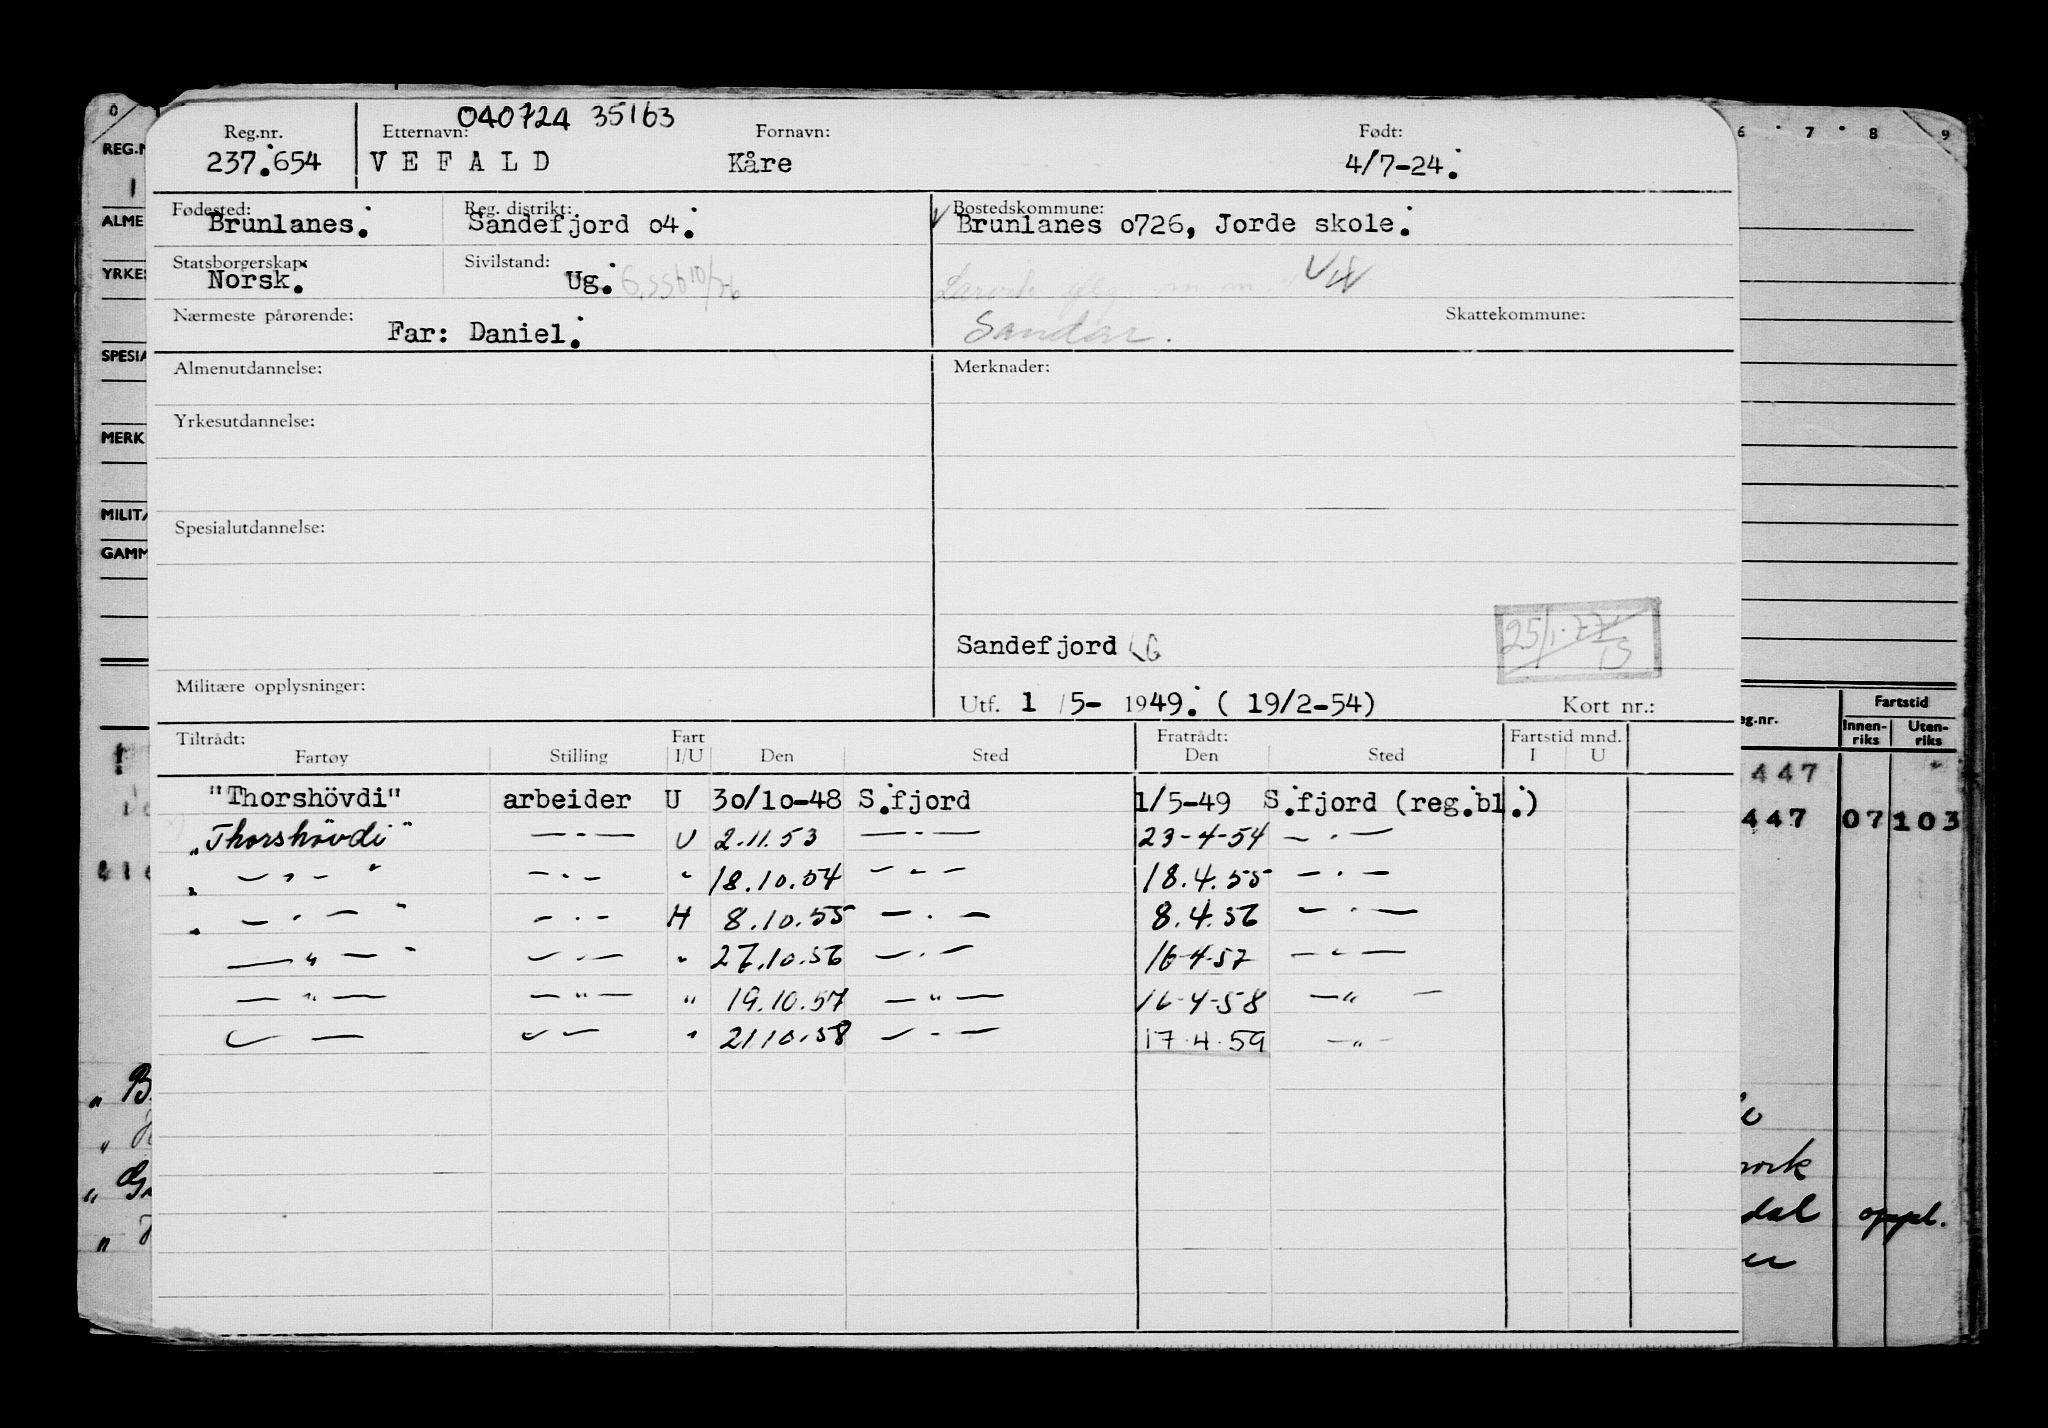 040724 35163
Reg.nr. Etternavn: Fornavn: Født:
237.654 VEFALD Kåre 4/7-24.
Fødested: Reg. distrikt: Bostedskommune:
Brunlanes. Sandefjord o4. Brunlanes o726, Jorde skole.
Statsborgerskap: Sivilstand:
Norsk. Ug.
Nærmeste pårørende: Skattekommune:
Far: Daniel. Sandar.
Almenutdannelse: Merknader:
Yrkesutdannelse:
Spesialutdannelse:
Sandefjord
Militære opplysninger:
Utf. 1 /5- 1949. ( 19/2-54) Kort nr.:
Tiltrådt: Fart Fratrådt: Fartstid mnd.
Fartøy Stilling I/U Den Sted Den Sted I U
"Thorshövdi" arbeider U 3o/1o-48 S.fjord 1/5-49 S.fjord (reg.bl.)
"Thorshövdi" —·— U 2.11.53 —·— 23-4-54 —·—
" —"— " —·— " 18.10.54 —·— 18.4.55 —·—
" —·— " —·— H 8.10.55 —·— 8.4.56 —·—
—"— " —·— " 27.10.56 —·— 16-4-57 —"—
—"— —"— " 19.10.57 —"— 16-4-58 —"—
— — — — " 21 10.58 —·— 17.4.59 —"—
0
REG.N
1
ALME
YRKES
SPESIA
MERK
MILITÆ
GAMM
6 7 8 9
eg.nr. Fartstid
Innen-riks Uten-riks
447
447 07 103
dal oppl.